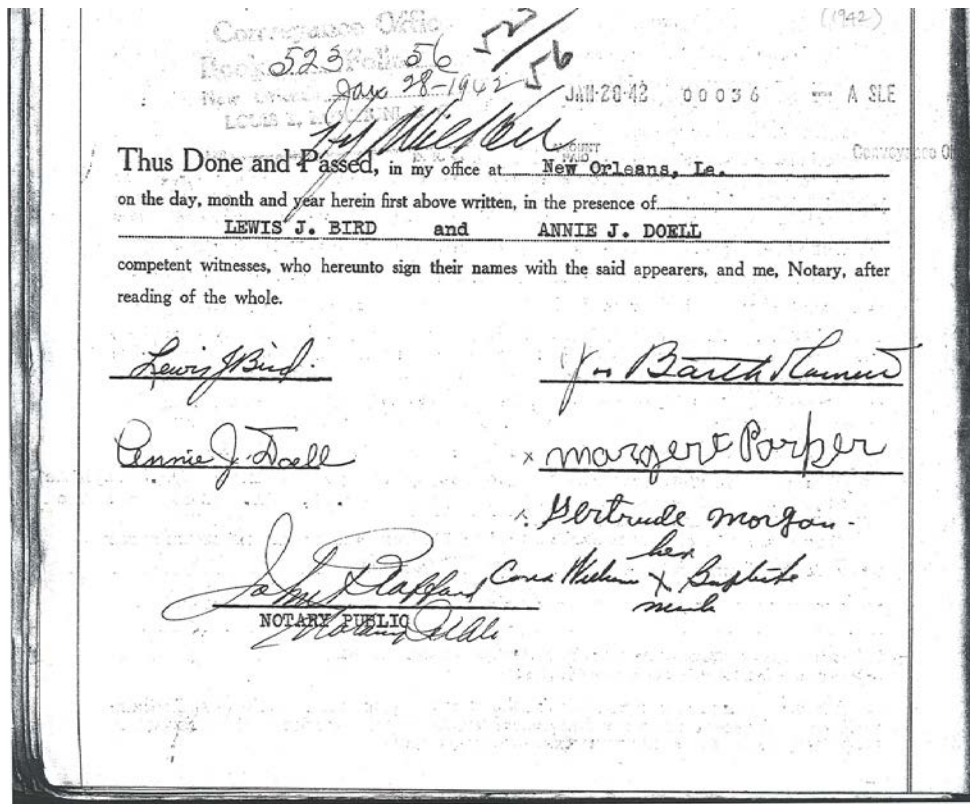 (1942)
Conveyance Office
523 56
Book Folio
523/56
Jan 28-1942
JAN-28-42 00036 A SLE
Thus Done and Passed, in my office at New Orleans, La.
on the day, month and year herein first above written, in the presence of
LEWIS J. BIRD and ANNIE J. DOELL
competent witnesses, who hereunto sign their names with the said appearers, and me, Notary, after
reading of the whole.
Lewis J Bird.
Barth
Annie J. Doell
x Margert Parper
Gertrude Morgan.
her
x Baptiste
mark
John
NOTARY PUBLIC